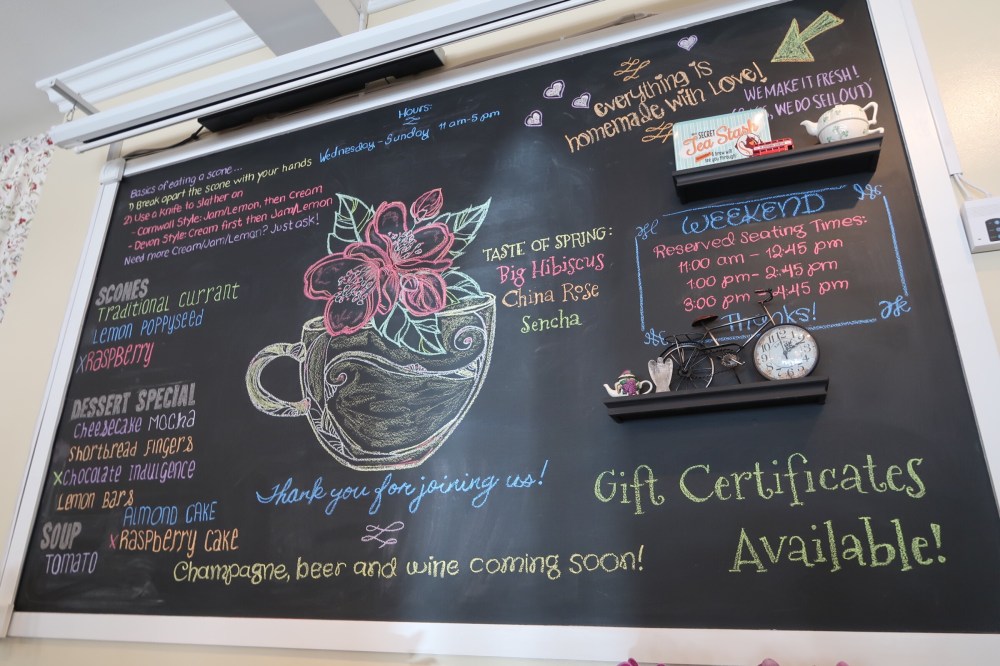 Hours:
Wednesday - Sunday 11am-5pm
Everything is
homemade with Love!
WE MAKE IT FRESH!
WE DO SELL OUT)
SECRET
Tea Stash
Basics of eating a scone...
1) Break apart the scone with your hands
2) Use a knife to slather on
- Cornwall Style: Jam/Lemon, then Cream
- Devon Style: Cream first then Jam/Lemon
Need more Cream/Jam/Lemon? Just ask!
SCONES
Traditional Currant
Lemon Poppyseed
x Raspberry
DESSERT SPECIAL
Cheesecake Mocha
Shortbread Fingers
x Chocolate Indulgence
Lemon Bars
ALMOND CAKE
x Raspberry Cake
SOUP
TOMATO
TASTE OF SPRING:
Big Hibiscus
China Rose
Sencha
WEEKEND
Reserved Seating Times:
11:00 am - 12:45 pm
1:00 pm - 2:45 pm
3:00 pm 4:45 pm
Thanks!
Thank you for joining us!
Champagne, beer and wine coming soon!
Gift Certificates
Available!